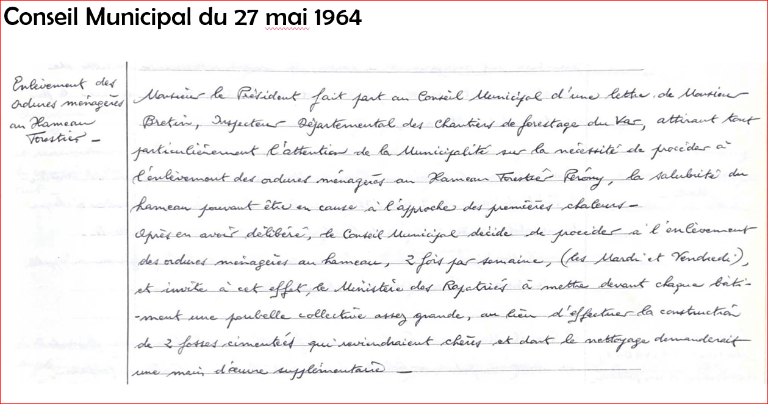 Conseil Municipal du 27 mai 1964
Enlèvement des
ordures ménagères
au Hameau
Forestier _
Monsieur le Président fait part au Conseil Municipal d'une lettre de Monsieur
Bretin, Inspecteur Départemental des Chantiers de forestage du Var, attirant tout
particulièrement l'attention de la Municipalité sur la nécessité de procéder à
l'enlèvement des ordures ménagères au Hameau Forestier Pérony, la salubrité du
hameau pouvant être en cause à l'approche des premières chaleurs _
Après en avoir délibéré, le Conseil Municipal décide de procéder à l'enlèvement
des ordures ménagères au hameau, 2 fois par semaine, (les Mardi et Vendredi),
et invite à cet effet, le Ministère des Rapatriés à mettre devant chaque bâti-
-ment une poubelle collective assez grande, au lieu d'effectuer la construction
de 2 fosses cimentées qui reviendraient chères et dont le nettoyage demanderait
une main d'œuvre supplémentaire _